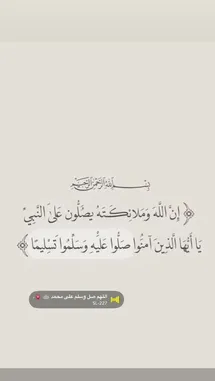 بسم الله الرحمن الرحيم
﴿ إِنَّ اللَّهَ وَمَلَائِكَتَهُ يُصَلُّونَ عَلَى النَّبِيِّ
يَا أَيُّهَا الَّذِينَ آمَنُوا صَلُّوا عَلَيْهِ وَسَلِّمُوا تَسْلِيمًا ﴾
اللهم صل وسلم على محمد